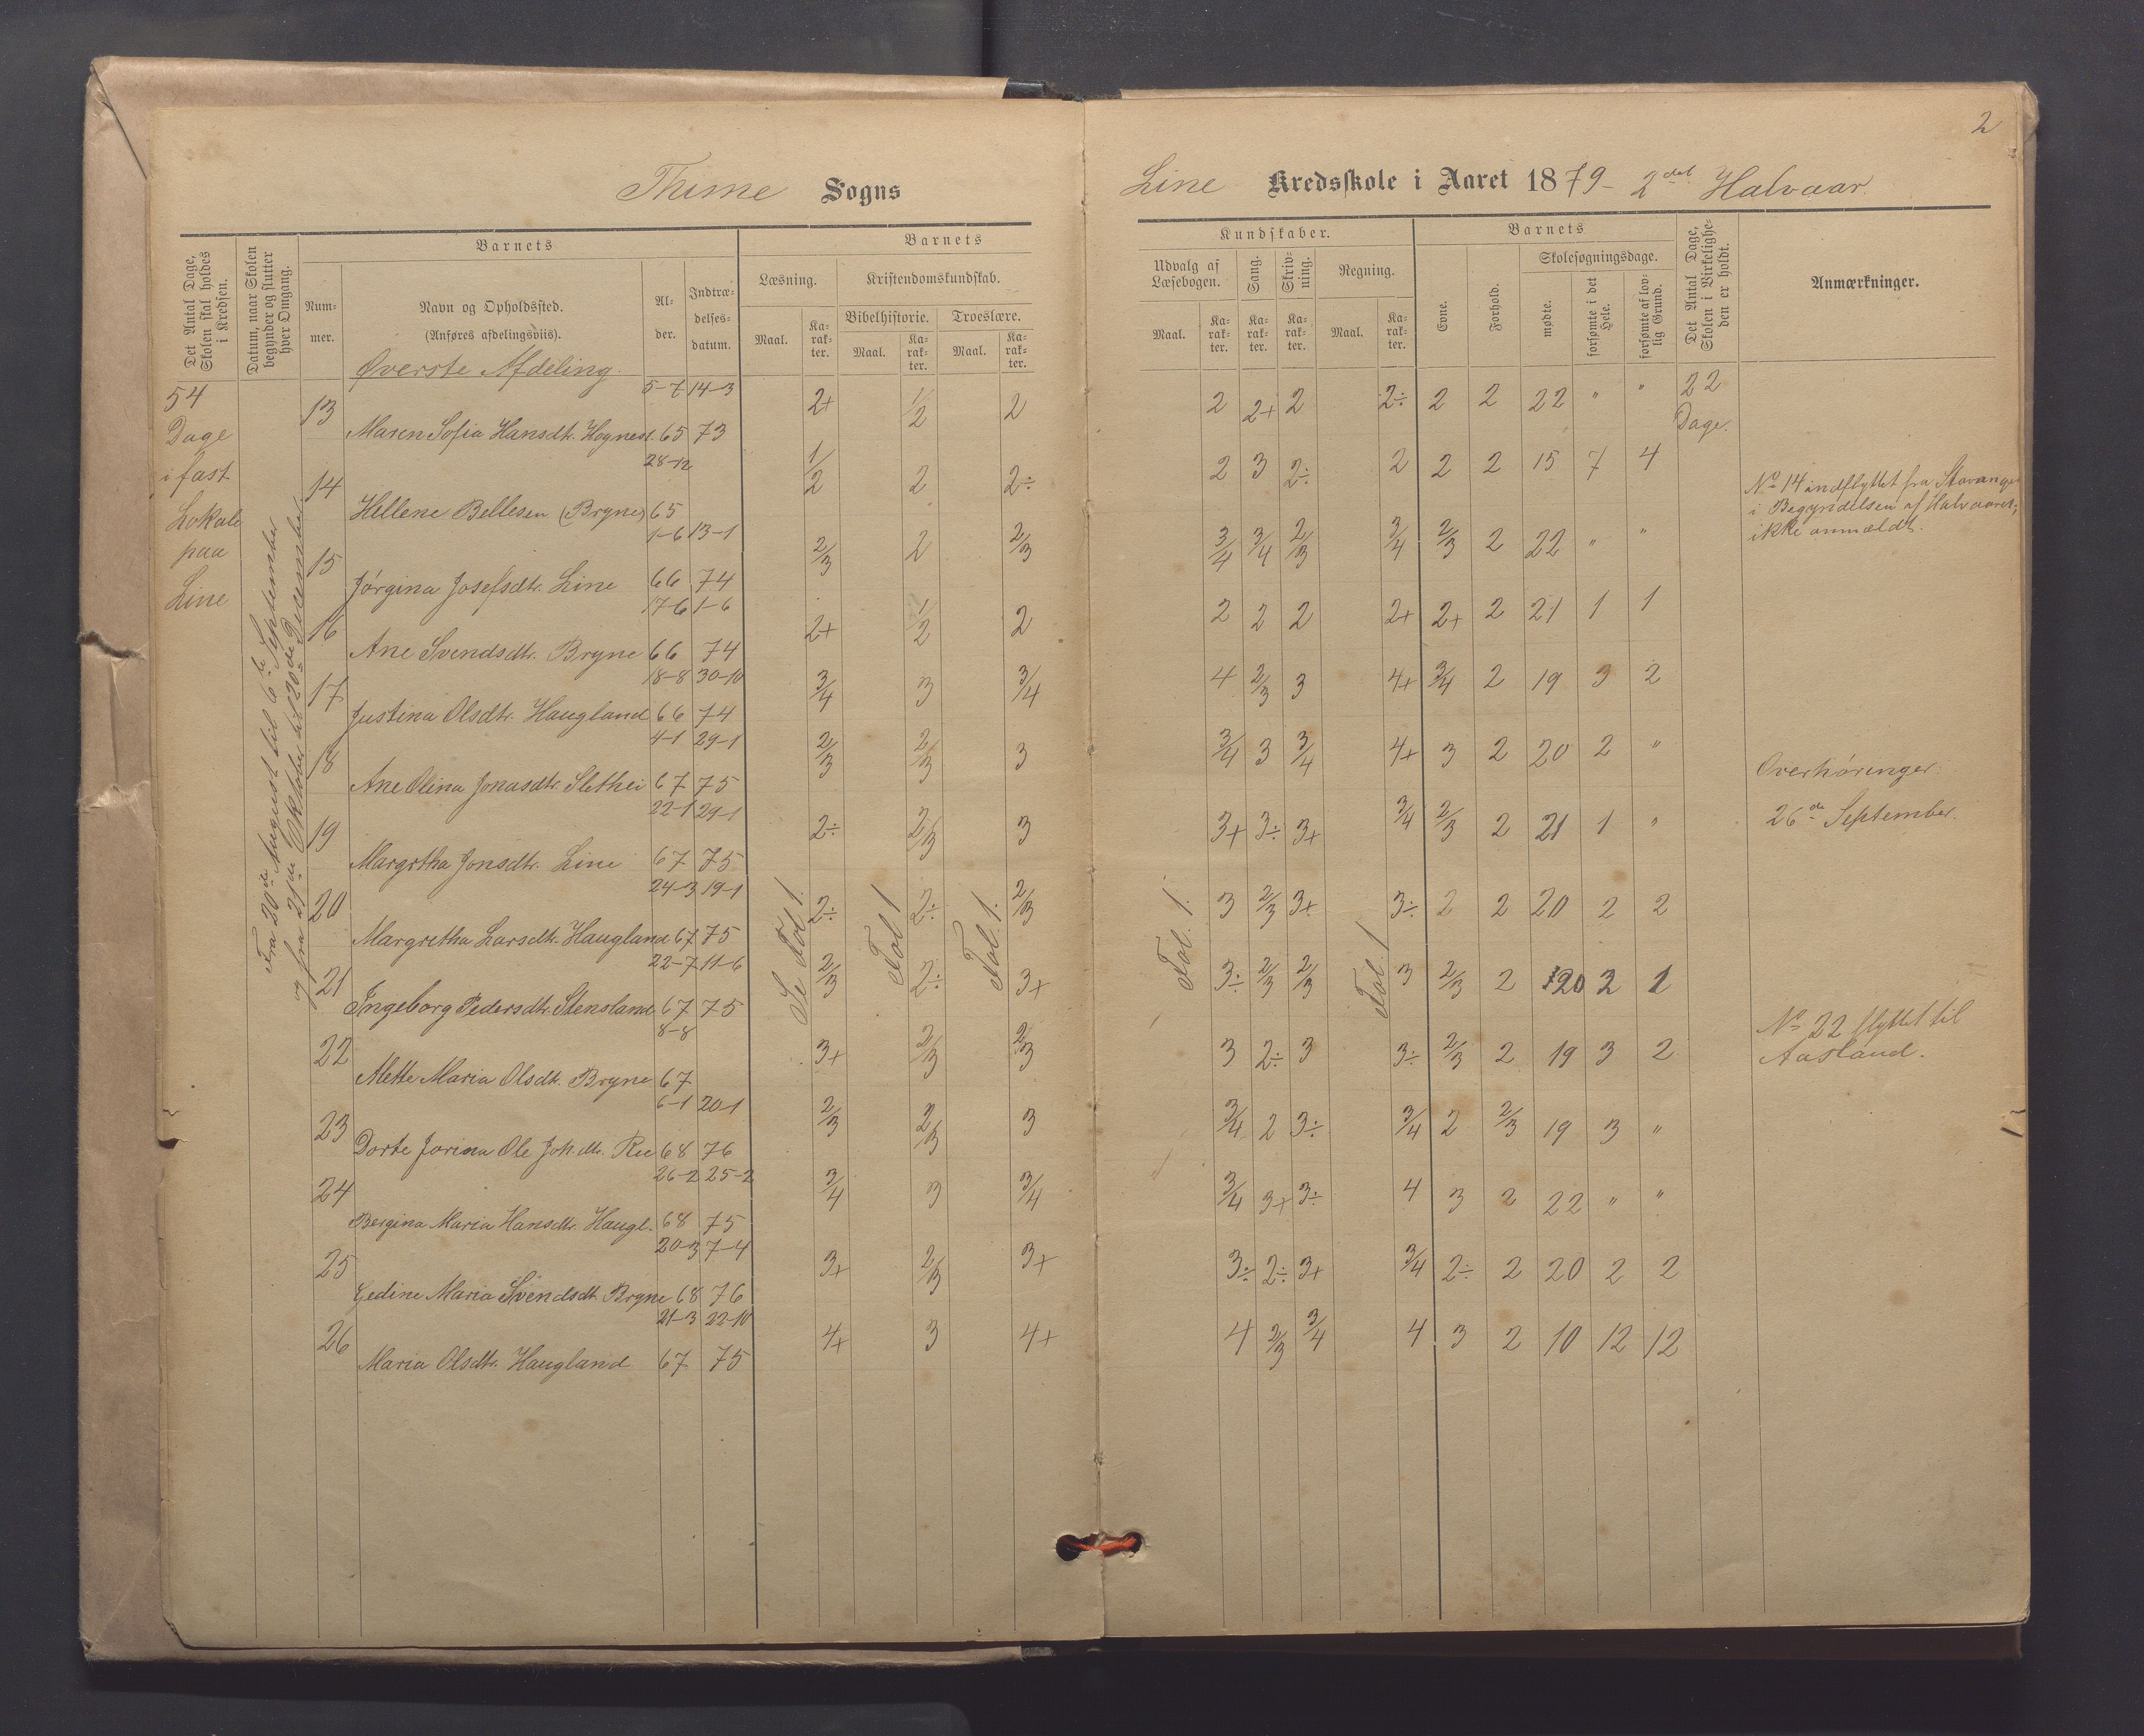 2
Thime Sogns
Line Kredsskole i Aaret 1879 - 2det Halvaar.
Det Antal Dage, Skolen skal holdes i Kredsen.
Datum, naar Skolen begynder og slutter hver Omgang.
Barnets
Nummer.
Navn og Opholdssted.
(Anføres afdelingsviis).
Alder.
Indtrædelsesdatum.
Barnets
Læsning.
Maal.
Karakter.
Kristendomskundskab.
Bibelhistorie.
Maal.
Karakter.
Troeslære.
Maal.
Karakter.
Kundskaber.
Udvalg af Læsebogen.
Maal.
Karakter.
Sang.
Karakter.
Skrivning.
Karakter.
Regning.
Maal.
Karakter.
Barnets
Evne.
Forhold.
Skolesøgningsdage.
mødte.
forsømte i det Hele.
forsømte af lovlig Grund.
Det Antal Dage, Skolen i Virkeligheden er holdt.
Anmærkninger.
Øverste Afdeling.
54
Dage
i fast
Lokale
paa
Line
Fra 20de August til 6te September
og fra 21de Oktober til 20de December
Se Fol 1.
Fol 1
Fol. 1.
Fol. 1.
Fol. 1
22
Dage.
13 Maren Sofia Hansdtr. Hognest. 5-7 65 14-3 73 2+ 1/2 2 2 2+ 2 2÷ 2 2 22 " "
14 Hellene Bellesen (Bryne) 28-12 65 1/2 2 2÷ 2 3 2÷ 2 2 2 15 7 4
15 Jørgina Josefsdtr. Line 1-6 66 13-1 74 2/3 2 2/3 3/4 3/4 2/3 3/4 2/3 2 22 " "
16 Ane Svendsdtr. Bryne 17-6 66 1-6 74 2+ 1/2 2 2 2 2 2+ 2+ 2 21 1 1
17 Justina Olsdtr. Haugland 18-8 66 30-10 74 3/4 3 3/4 4 2/3 3 4+ 3/4 2 19 3 2
18 Ane Olina Jonasdtr. Slethei 4-1 67 29-1 75 2/3 2/3 3 3/4 3 3/4 4+ 3 2 20 2 "
19 Margrtha Jonsdtr. Line 22-1 67 29-1 75 2÷ 2/3 3 3+ 3÷ 3+ 3/4 2/3 2 21 1 "
20 Margretha Larsdtr. Haugland 24-3 67 19-1 75 2÷ 2÷ 2/3 3 2/3 3+ 3÷ 2 2 20 2 2
21 Ingeborg Pedersdtr. Stensland 22-7 67 11-6 75 2/3 2÷ 3+ 3÷ 2/3 2/3 3 2/3 2 20 2 1
22 Mette Maria Olsdtr. Bryne 8-8 67 3+ 2/3 2/3 3 2÷ 3 3÷ 2/3 2 19 3 2
23 Dorte Jorina Ole Joh. dtr. Ree 6-1 68 20-1 76 2/3 2/3 3 3/4 2 3÷ 3/4 2 2/3 19 3 "
24 Bergina Maria Hansdtr. Haugl. 26-2 68 25-2 75 3/4 3 3/4 3/4 3+ 3÷ 4 3 2 22 " "
25 Gedine Maria Svendsdt. Bryne 20-3 68 7-4 76 3+ 2/3 3+ 3÷ 2÷ 3+ 3/4 2÷ 2 20 2 2
26 Maria Olsdtr. Haugland 21-3 67 22-10 75 4+ 3 4+ 4 2/3 3/4 4 3 2 10 12 12
No 14 indflyttet fra Stavanger
i Begyndelsen af Halvaaret,
ikke anmældt.
Overhøringer.
26de September.
No 22 flyttet til
Aasland.